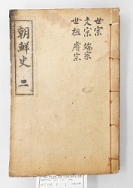 世宗
文宗 端宗
世祖 睿宗
朝鮮史 二